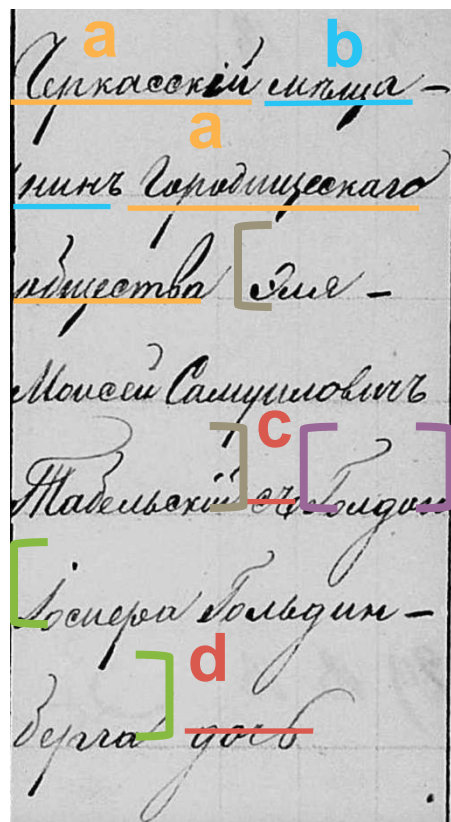 a b
Черкасскій мѣща-
a
нинъ Городищескаго
общества Эля-
Моисей Самуиловичъ
c
Табельскій съ Голдою
Іосифра Гольдин-
d
берга дочь